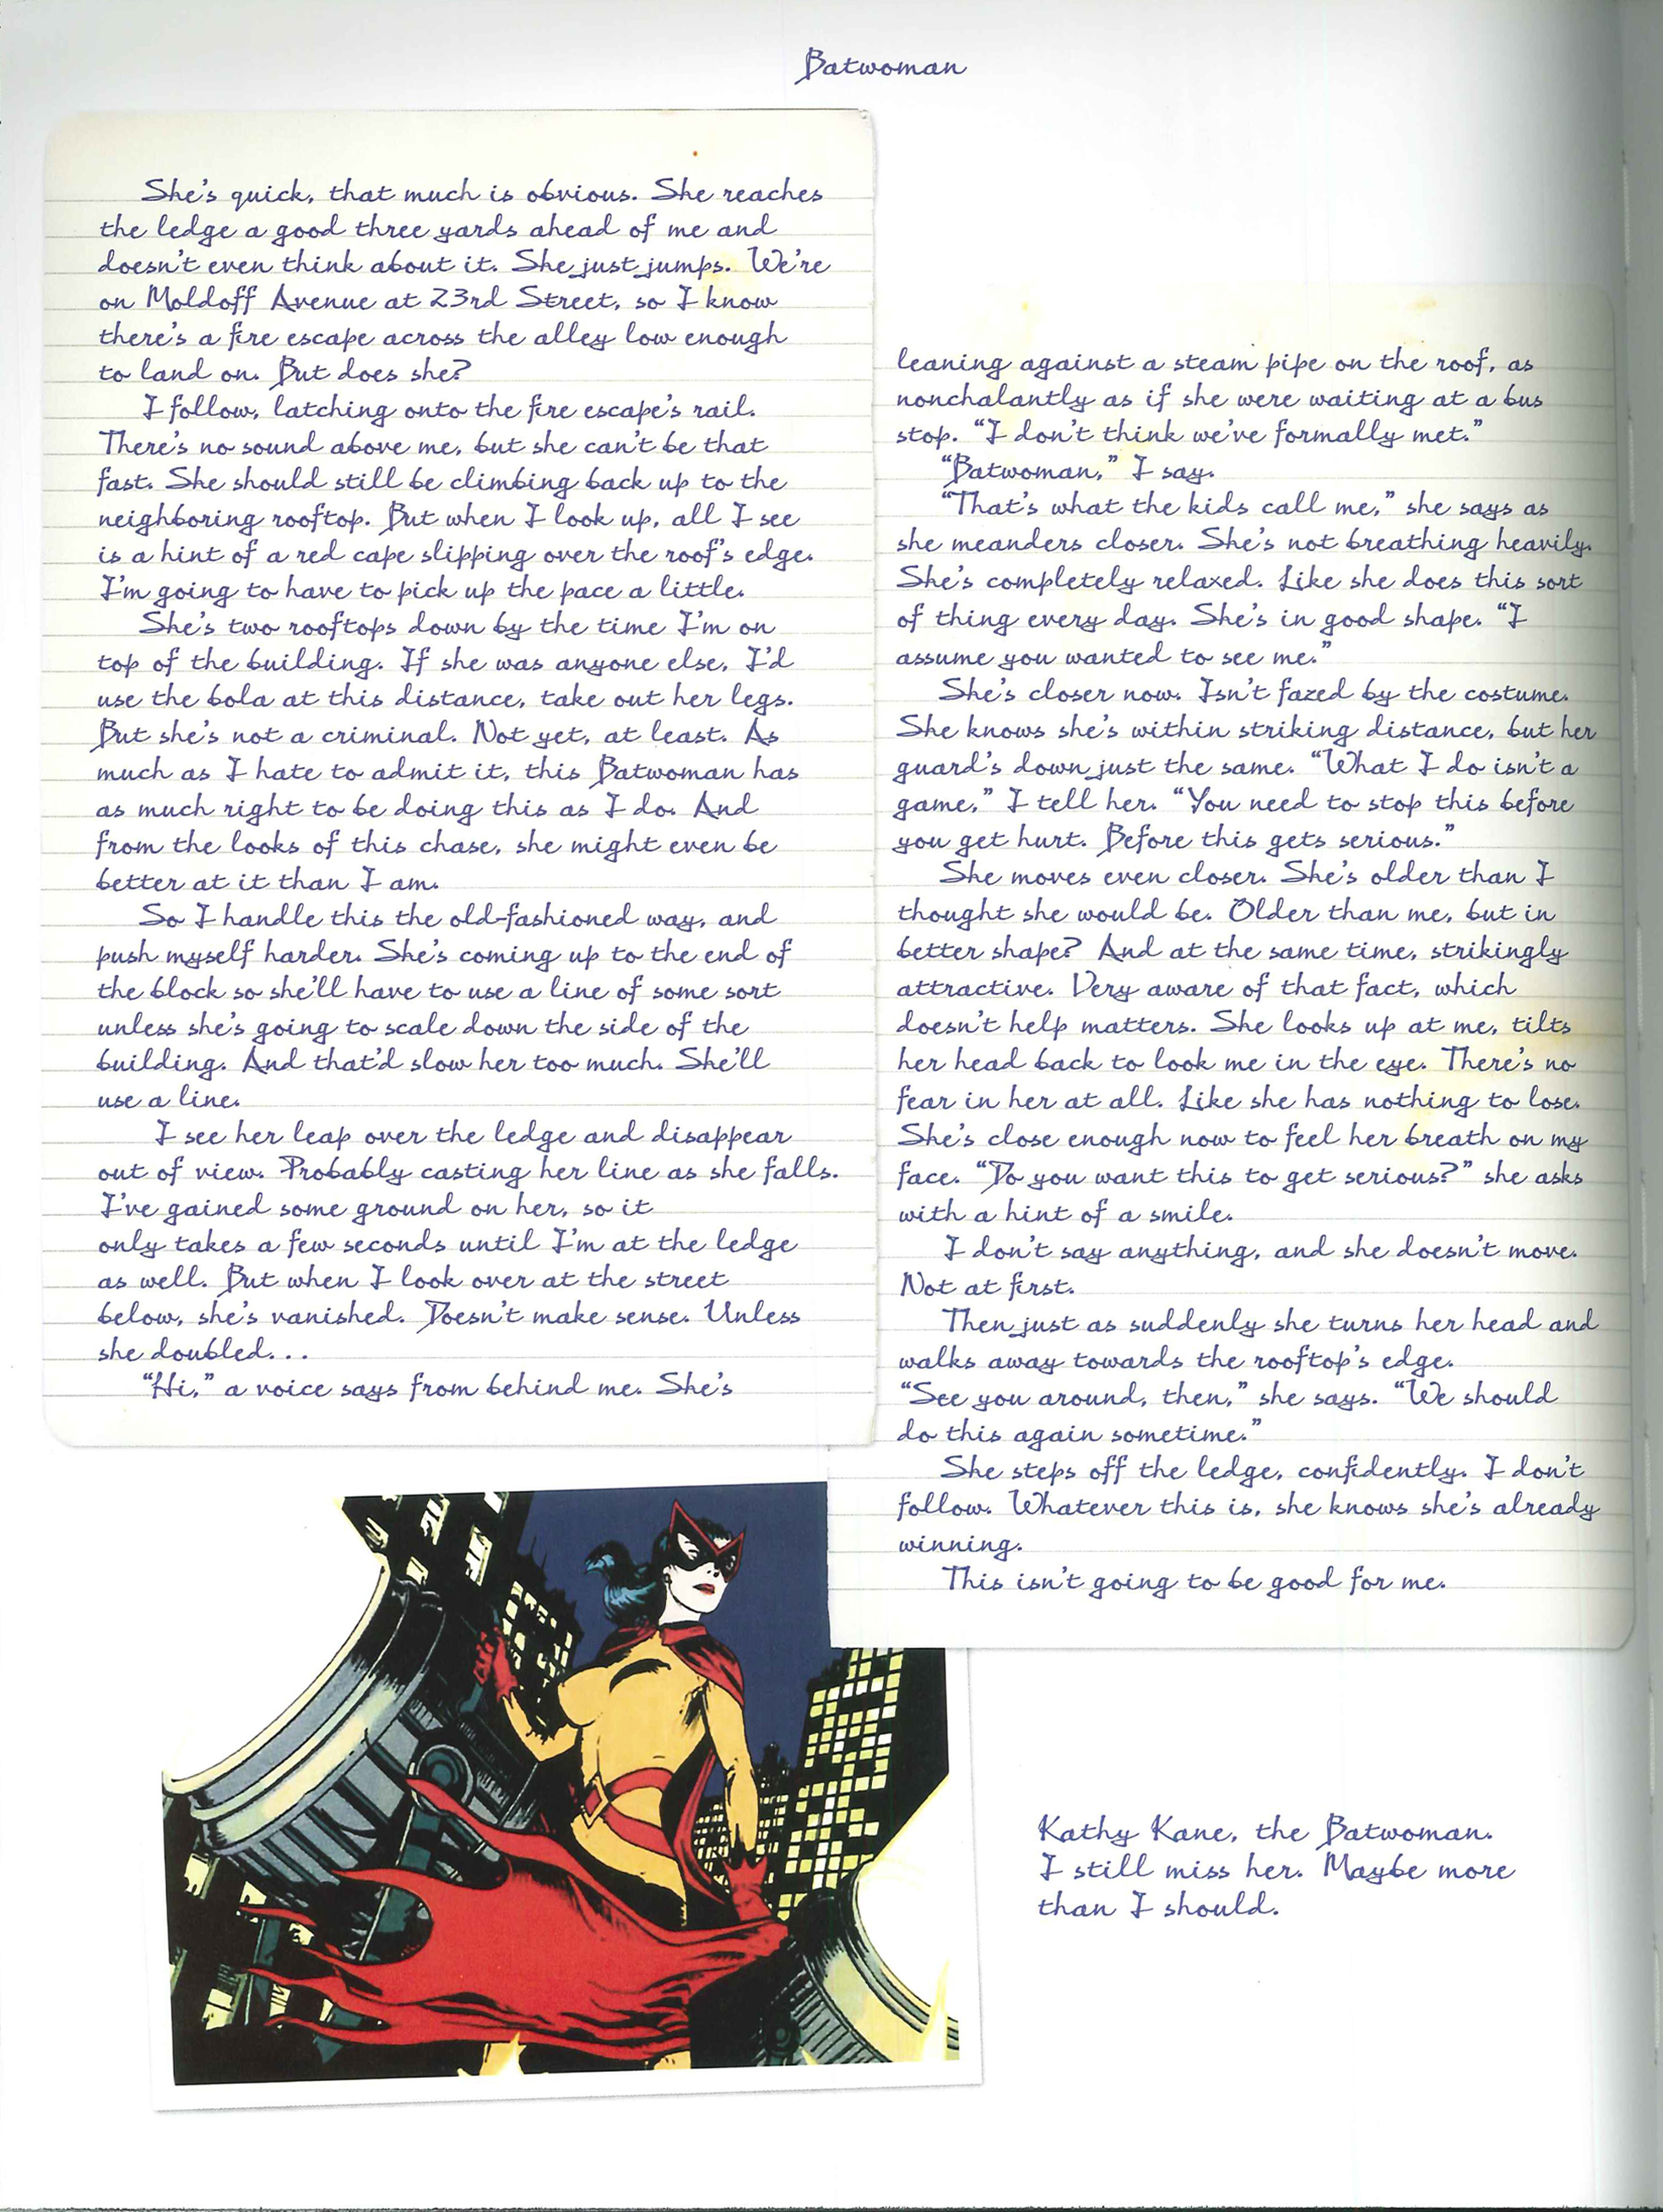 Batwoman
She's quick, that much is obvious. She reaches
the ledge a good three yards ahead of me and
doesn't even think about it. She just jumps. We're
on Moldoff Avenue at 23rd Street, so I know
there's a fire escape across the alley low enough
to land on. But does she?
I follow, latching onto the fire escape's rail.
There's no sound above me, but she can't be that
fast. She should still be climbing back up to the
neighboring rooftop. But when I look up, all I see
is a hint of a red cape slipping over the roof's edge.
I'm going to have to pick up the pace a little.
She's two rooftops down by the time I'm on
top of the building. If she was anyone else, I'd
use the bola at this distance, take out her legs.
But she's not a criminal. Not yet, at least. As
much as I hate to admit it, this Batwoman has
as much right to be doing this as I do. And
from the looks of this chase, she might even be
better at it than I am.
So I handle this the old-fashioned way, and
push myself harder. She's coming up to the end of
the block so she'll have to use a line of some sort
unless she's going to scale down the side of the
building. And that'd slow her too much. She'll
use a line.
I see her leap over the ledge and disappear
out of view. Probably casting her line as she falls.
I've gained some ground on her, so it
only takes a few seconds until I'm at the ledge
as well. But when I look over at the street
below, she's vanished. Doesn't make sense. Unless
she doubled...
"Hi," a voice says from behind me. She's
leaning against a steam pipe on the roof, as
nonchalantly as if she were waiting at a bus
stop. "I don't think we've formally met."
"Batwoman," I say.
"That's what the kids call me," she says as
she meanders closer. She's not breathing heavily.
She's completely relaxed. Like she does this sort
of thing every day. She's in good shape. "I
assume you wanted to see me."
She's closer now. Isn't fazed by the costume.
She knows she's within striking distance, but her
guard's down just the same. "What I do isn't a
game," I tell her. "You need to stop this before
you get hurt. Before this gets serious."
She moves even closer. She's older than I
thought she would be. Older than me, but in
better shape? And at the same time, strikingly
attractive. Very aware of that fact, which
doesn't help matters. She looks up at me, tilts
her head back to look me in the eye. There's no
fear in her at all. Like she has nothing to lose.
She's close enough now to feel her breath on my
face. "Do you want this to get serious?" she asks
with a hint of a smile.
I don't say anything, and she doesn't move.
Not at first.
Then just as suddenly she turns her head and
walks away towards the rooftop's edge.
"See you around, then," she says. "We should
do this again sometime."
She steps off the ledge, confidently. I don't
follow. Whatever this is, she knows she's already
winning.
This isn't going to be good for me.
Kathy Kane, the Batwoman.
I still miss her. Maybe more
than I should.